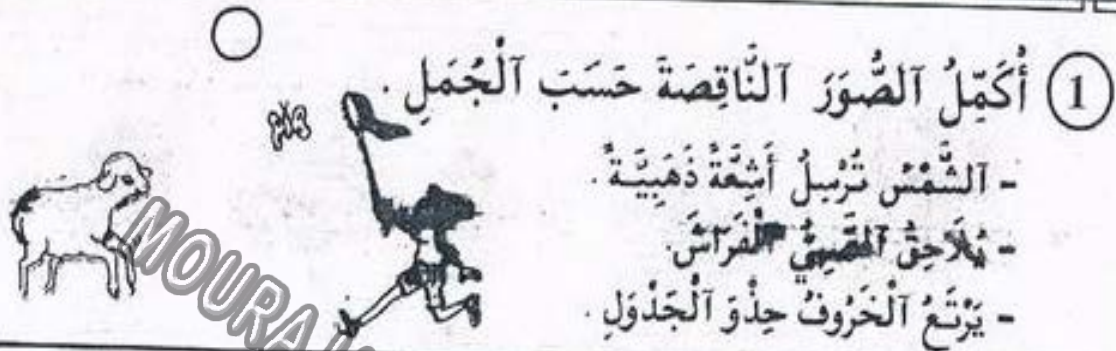 1 أُكَمِّلُ ٱلصُّوَرَ ٱلنَّاقِصَةَ حَسَبَ ٱلْجُمَلِ .
- ٱلشَّمْسُ تُرْسِلُ أَشِعَّةً ذَهَبِيَّةً .
- يُلَاحِقُ ٱلصَّبِيُّ ٱلْفَرَاشَ.
- يَرْتَعُ ٱلْخَرُوفُ حِذْوَ ٱلْجَدْوَلِ .